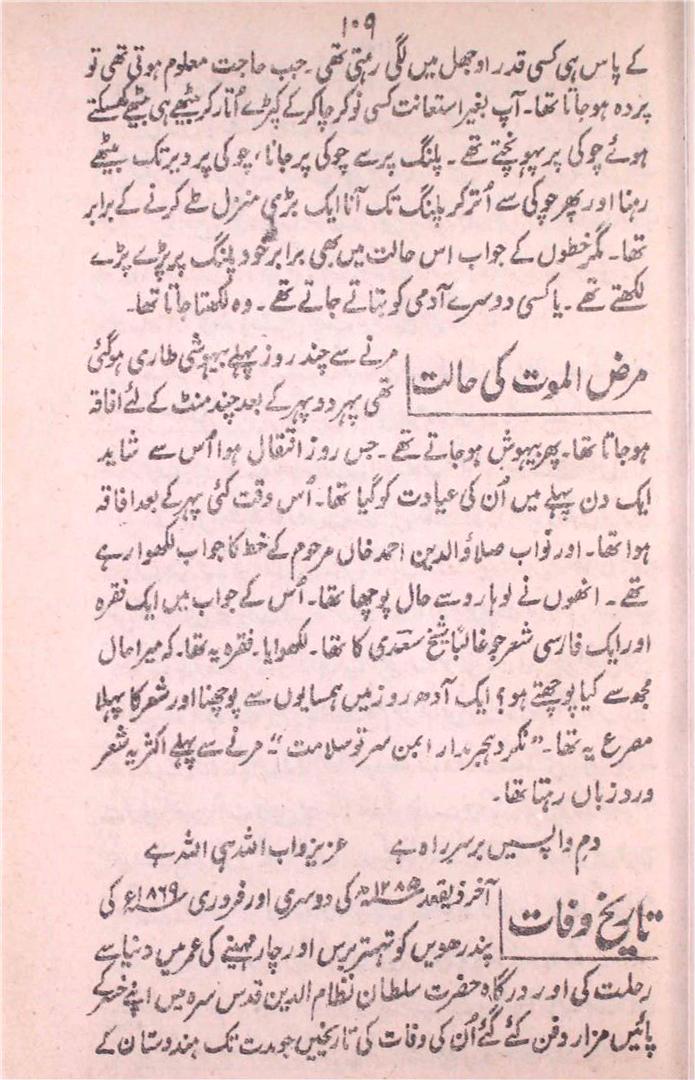 ۱۰۹
کے پاس ہی کسی قدر اوجھل میں لگی رہتی تھی۔ جب حاجت معلوم ہوتی تھی تو
پردہ ہوجاتا تھا۔ آپ بغیر استعانت کسی نوکر چاکر کے کپڑے اُتار کر بیٹھے ہی بیٹھے کھسکتے
ہوئے چوکی پر پہونچتے تھے۔ پلنگ پر سے چوکی پر جانا، چوکی پر دیر تک بیٹھے
رہنا اور پھر چوکی سے اُتر کر پلنگ تک آنا ایک بڑی منزل طے کرنے کے برابر
تھا۔ مگر خطوں کے جواب اس حالت میں بھی برابر خود پلنگ پر پڑے پڑے
لکھتے تھے۔ یا کسی دوسرے آدمی کو بتاتے جاتے تھے۔ وہ لکھتا جاتا تھا۔
مرض الموت کی حالت
مرنے سے چند روز پہلے بیہوشی طاری ہوگئی
تھی پہر دوپہر کے بعد چند منٹ کے لئے افاقہ
ہوجاتا تھا۔ پھر بیہوش ہوجاتے تھے۔ جس روز انتقال ہوا اُس سے شاید
ایک دن پہلے میں اُن کی عیادت کو گیا تھا۔ اُس وقت کئی پہر کے بعد افاقہ
ہوا تھا۔ اور نواب صلاؤالدین احمد خاں مرحوم کے خط کا جواب لکھوا رہے
تھے۔ انھوں نے لوہارو سے حال پوچھا تھا۔ اُس کے جواب میں ایک فقرہ
اور ایک فارسی شعر جو غالباً شیخ سعدی کا تھا۔ لکھوایا۔ فقرہ یہ تھا۔ کہ میرا حال
مجھ سے کیا پوچھتے ہو؟ ایک آدھ روز میں ہمسایوں سے پوچھنا اور شعر کا پہلا
مصرع یہ تھا۔ ”نکرد ہجر مدارا بمن سر تو سلامت“۔ مرنے سے پہلے اکثر یہ شعر
ورد زباں رہتا تھا۔
دمِ واپسیں بر سر راہ ہے عزیزو اب اللہ ہی اللہ ہے
تاریخ وفات
آخر ذیقعد ۱۲۸۵ھ کی دوسری اور فروری ۱۸۶۹ء کی
پندرھویں کو تہتر برس اور چار مہینے کی عمر میں دنیا سے
رحلت کی اور درگاہ حضرت سلطان نظام الدین قدس سرہ میں اپنے خسر کے
پائیں مزار دفن کئے گئے اُن کی وفات کی تاریخیں جو مدت تک ہندوستان کے